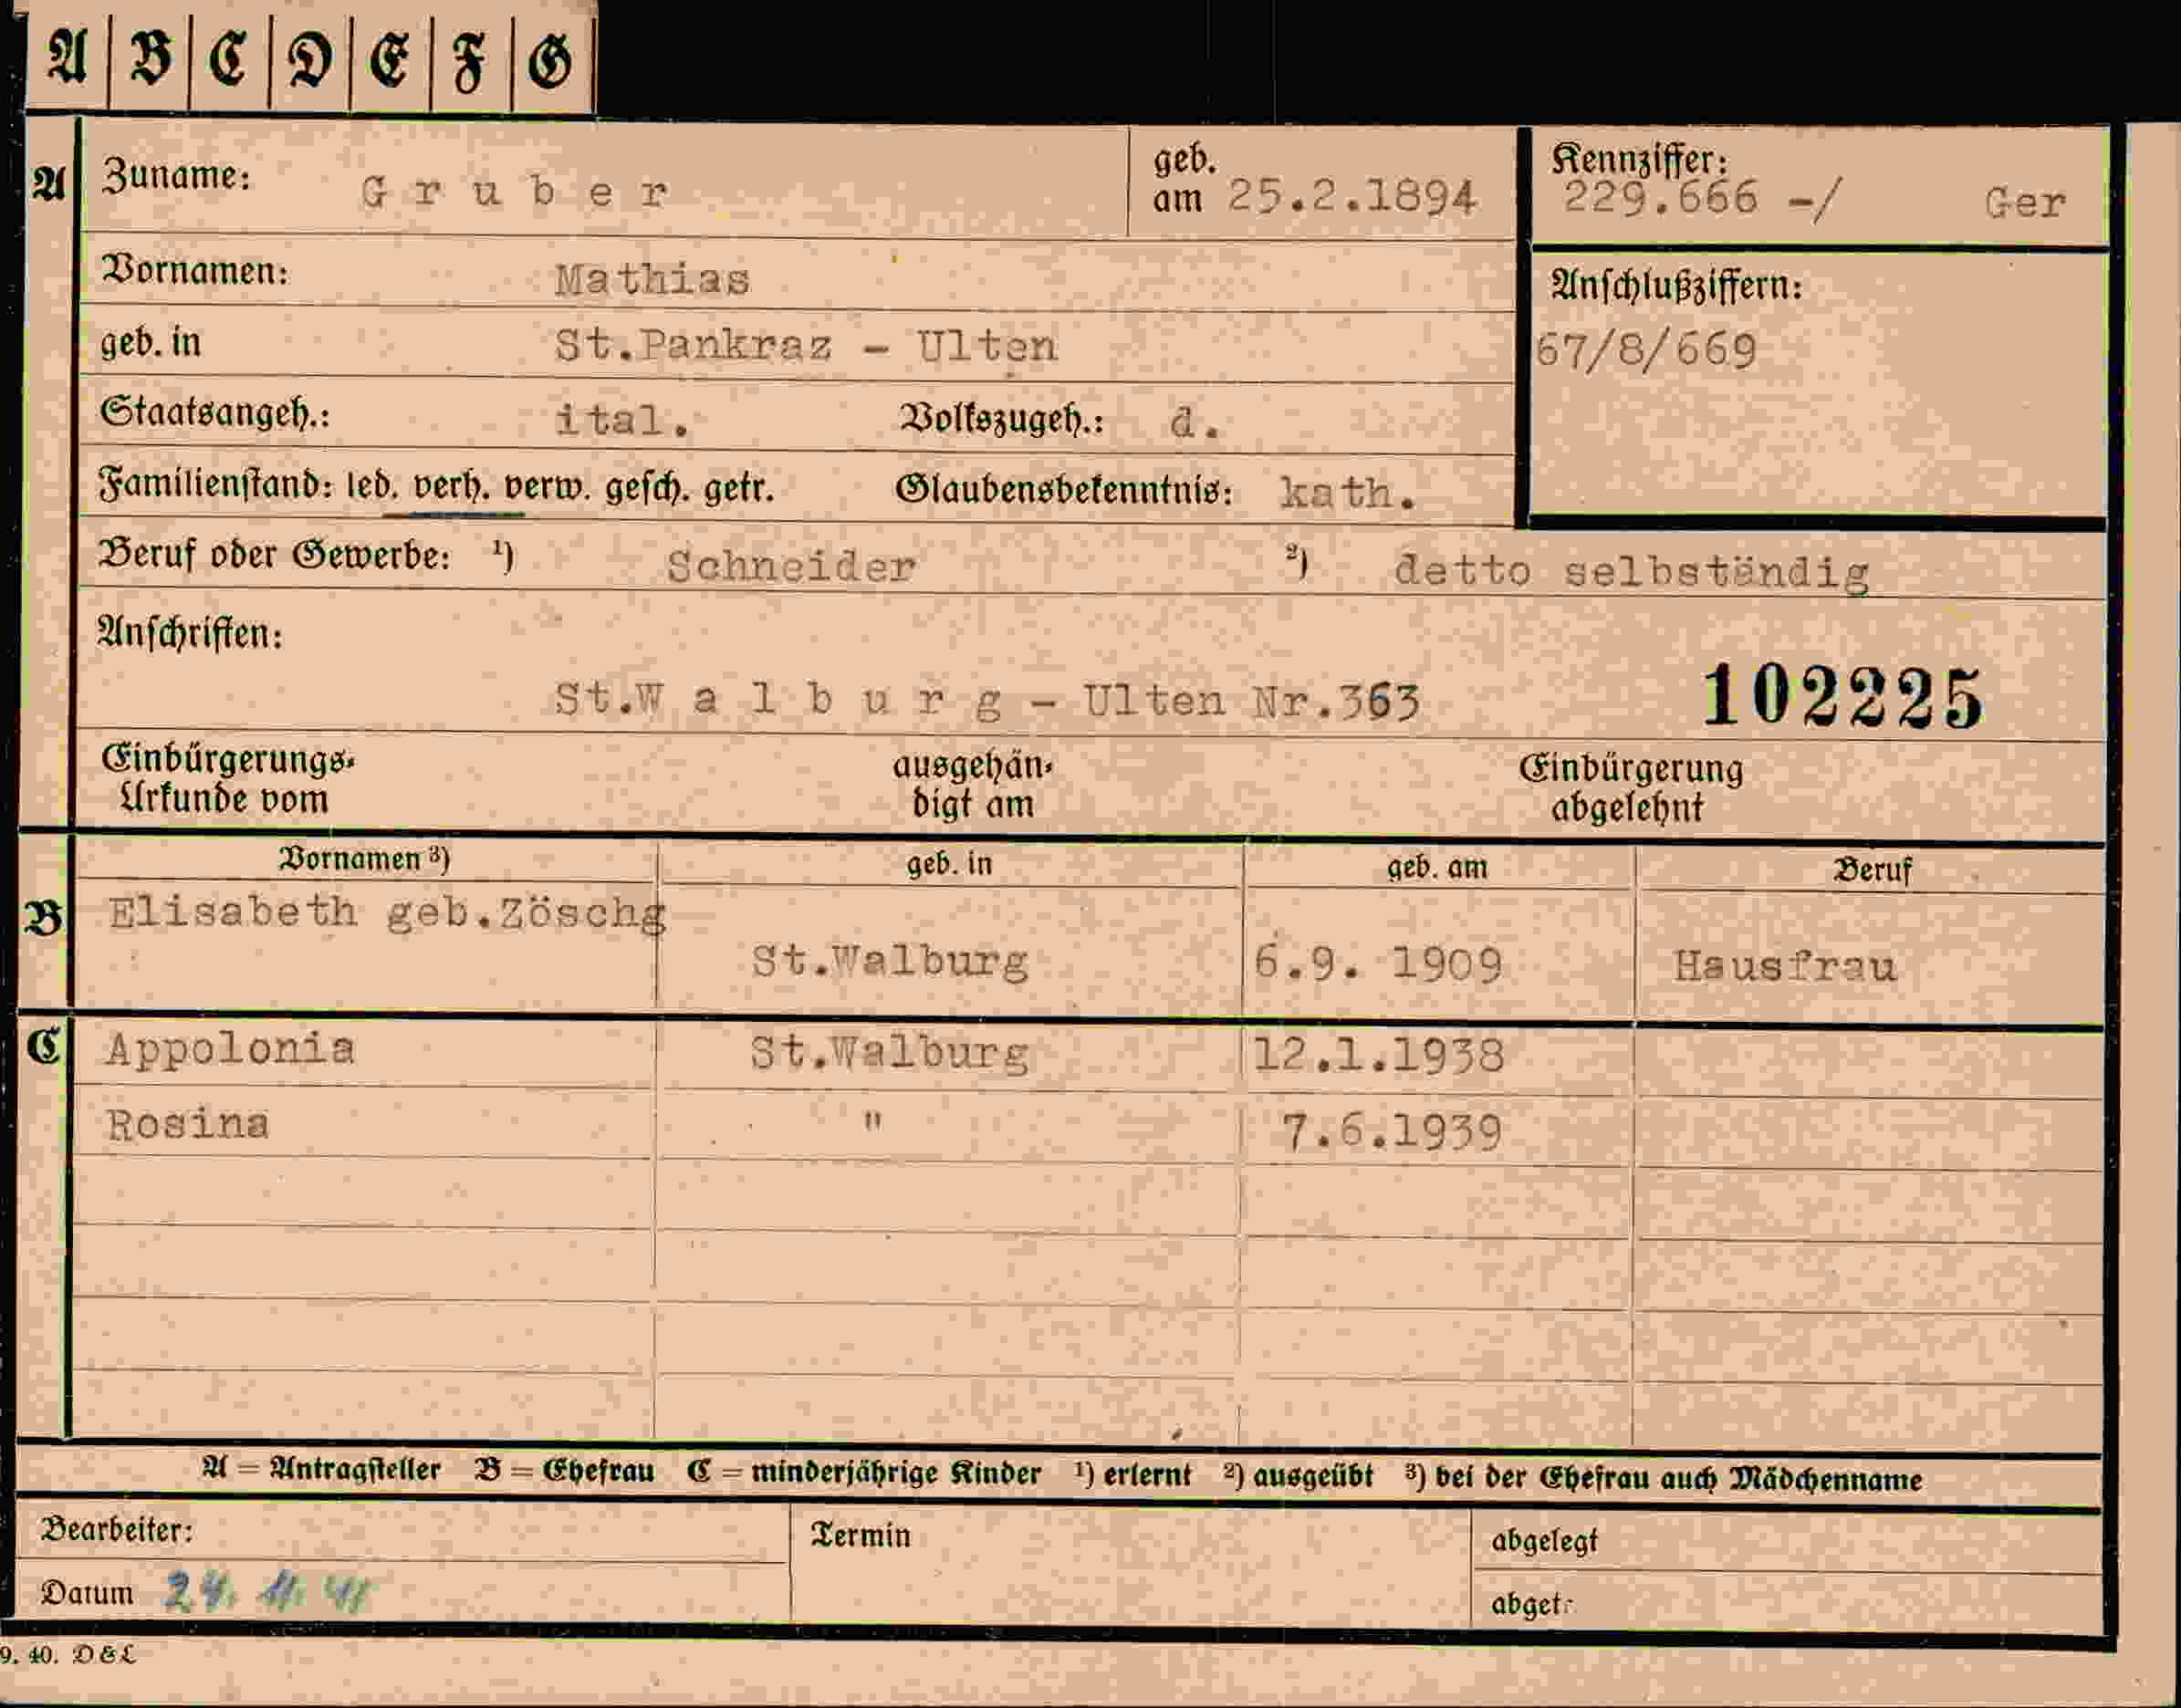 A B C D E F G
A Zuname: Gruber geb. am 25.2.1894 Kennziffer: 229.666 -/ Ger
Vornamen: Mathias Anschlußziffern:
geb. in St.Pankraz - Ulten 67/8/669
Staatsangeh.: ital. Volkszugeh.: d.
Familienstand: led. verh. verw. gesch. getr. Glaubensbekenntnis: kath.
Beruf oder Gewerbe: ¹) Schneider ²) detto selbständig
Anschriften:
St.Walburg - Ulten Nr.363 102225
Einbürgerungs- ausgehän- Einbürgerung
Urkunde vom digt am abgelehnt
Vornamen ³) geb. in geb. am Beruf
B Elisabeth geb.Zöschg
St.Walburg 6.9. 1909 Hausfrau
C Appolonia St.Walburg 12.1.1938
Rosina " 7.6.1939
A = Antragsteller B = Ehefrau C = minderjährige Kinder ¹) erlernt ²) ausgeübt ³) bei der Ehefrau auch Mädchenname
Bearbeiter: Termin abgelegt
Datum abget.
9. 40. D & L